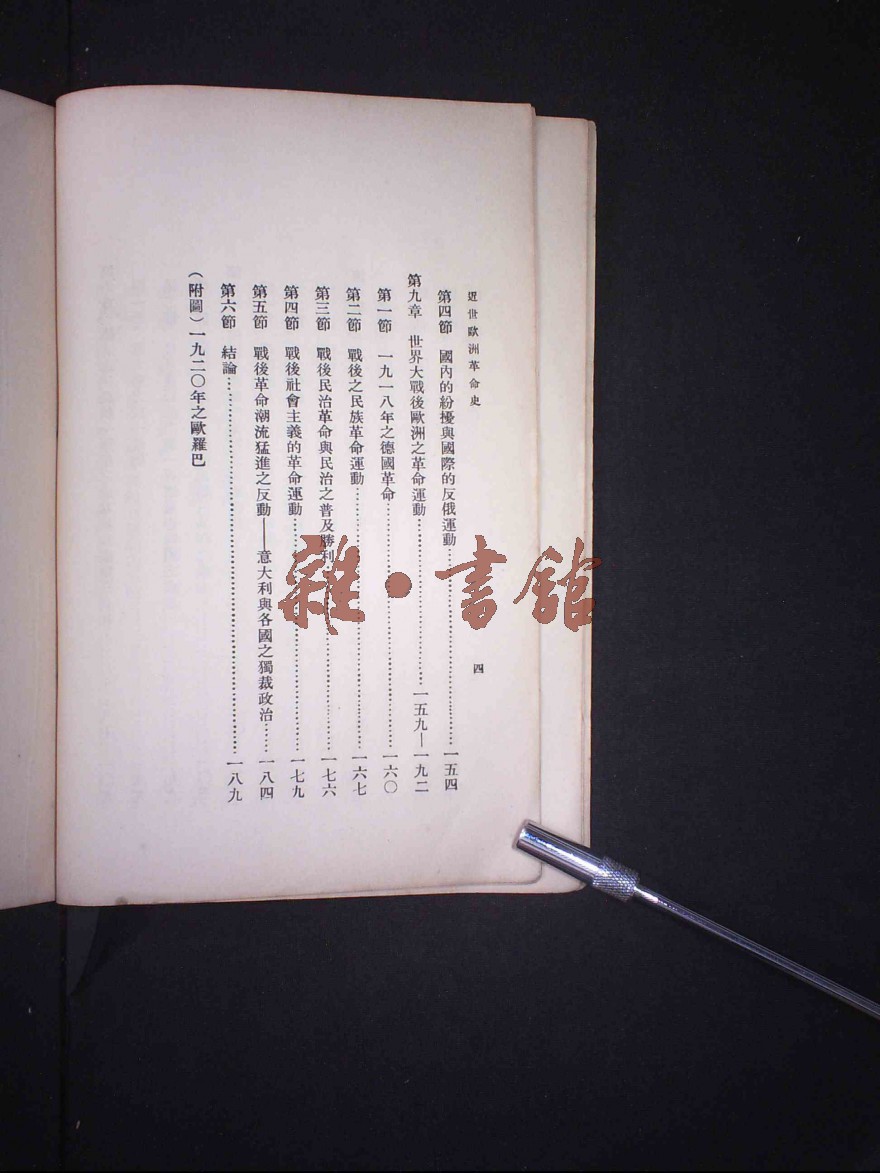 近世歐洲革命史
四
第四節　國內的紛擾與國際的反俄運動……一五四
第九章　世界大戰後歐洲之革命運動……一五九—一九二
第一節　一九一八年之德國革命……一六〇
第二節　戰後之民族革命運動……一六七
第三節　戰後民治革命與民治之普及勝利……一七六
第四節　戰後社會主義的革命運動……一七九
第五節　戰後革命潮流猛進之反動——意大利與各國之獨裁政治……一八四
第六節　結論……一八九
（附圖）一九二〇年之歐羅巴
雜·書館